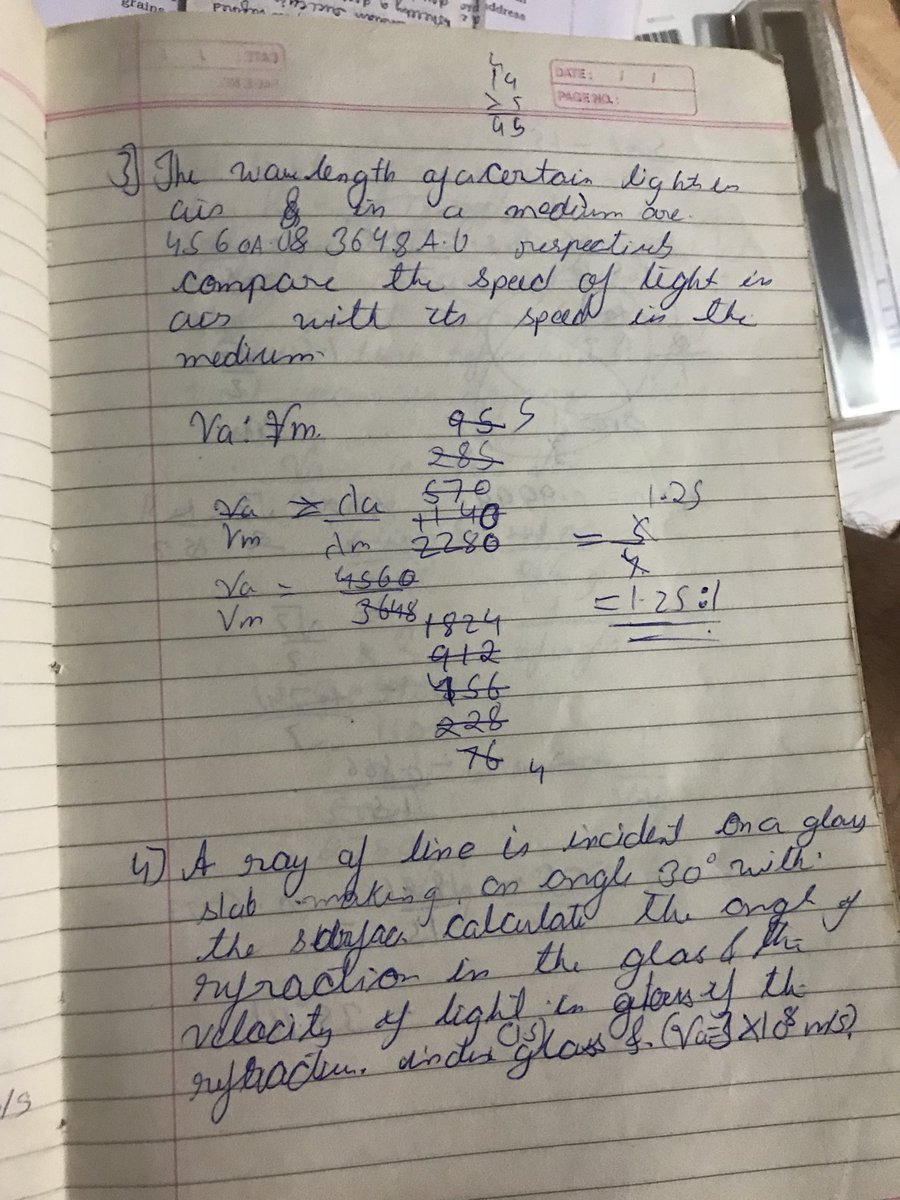 grains
address
4
14
25
45
DATE: / /
PAGE NO.:
3] The wavelength of a certain light in
air & in a medium are
4560A.U & 3648A.U respectively
compare the speed of light in
air with its speed in the
medium.
Va: Vm.
95 5
285
570
1140
2280
Va = λa
Vm λm
Va = 4560
Vm 3648
1.25
= 5
4
= 1.25:1
1824
912
456
228
76 4
4) A ray of line is incident on a glass
slab making an angle 30° with
the surface calculate the angle of
refraction in the glass & the
velocity of light in glass if the
refractive index glass (1.5) & (Va=3×10⁸ m/s)